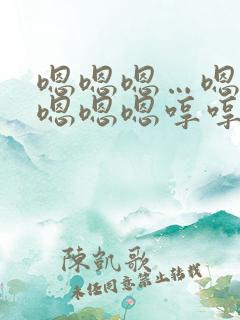 嗯嗯嗯…嗯
嗯嗯嗯哼哼
陳凱歌
未經同意禁止轉載